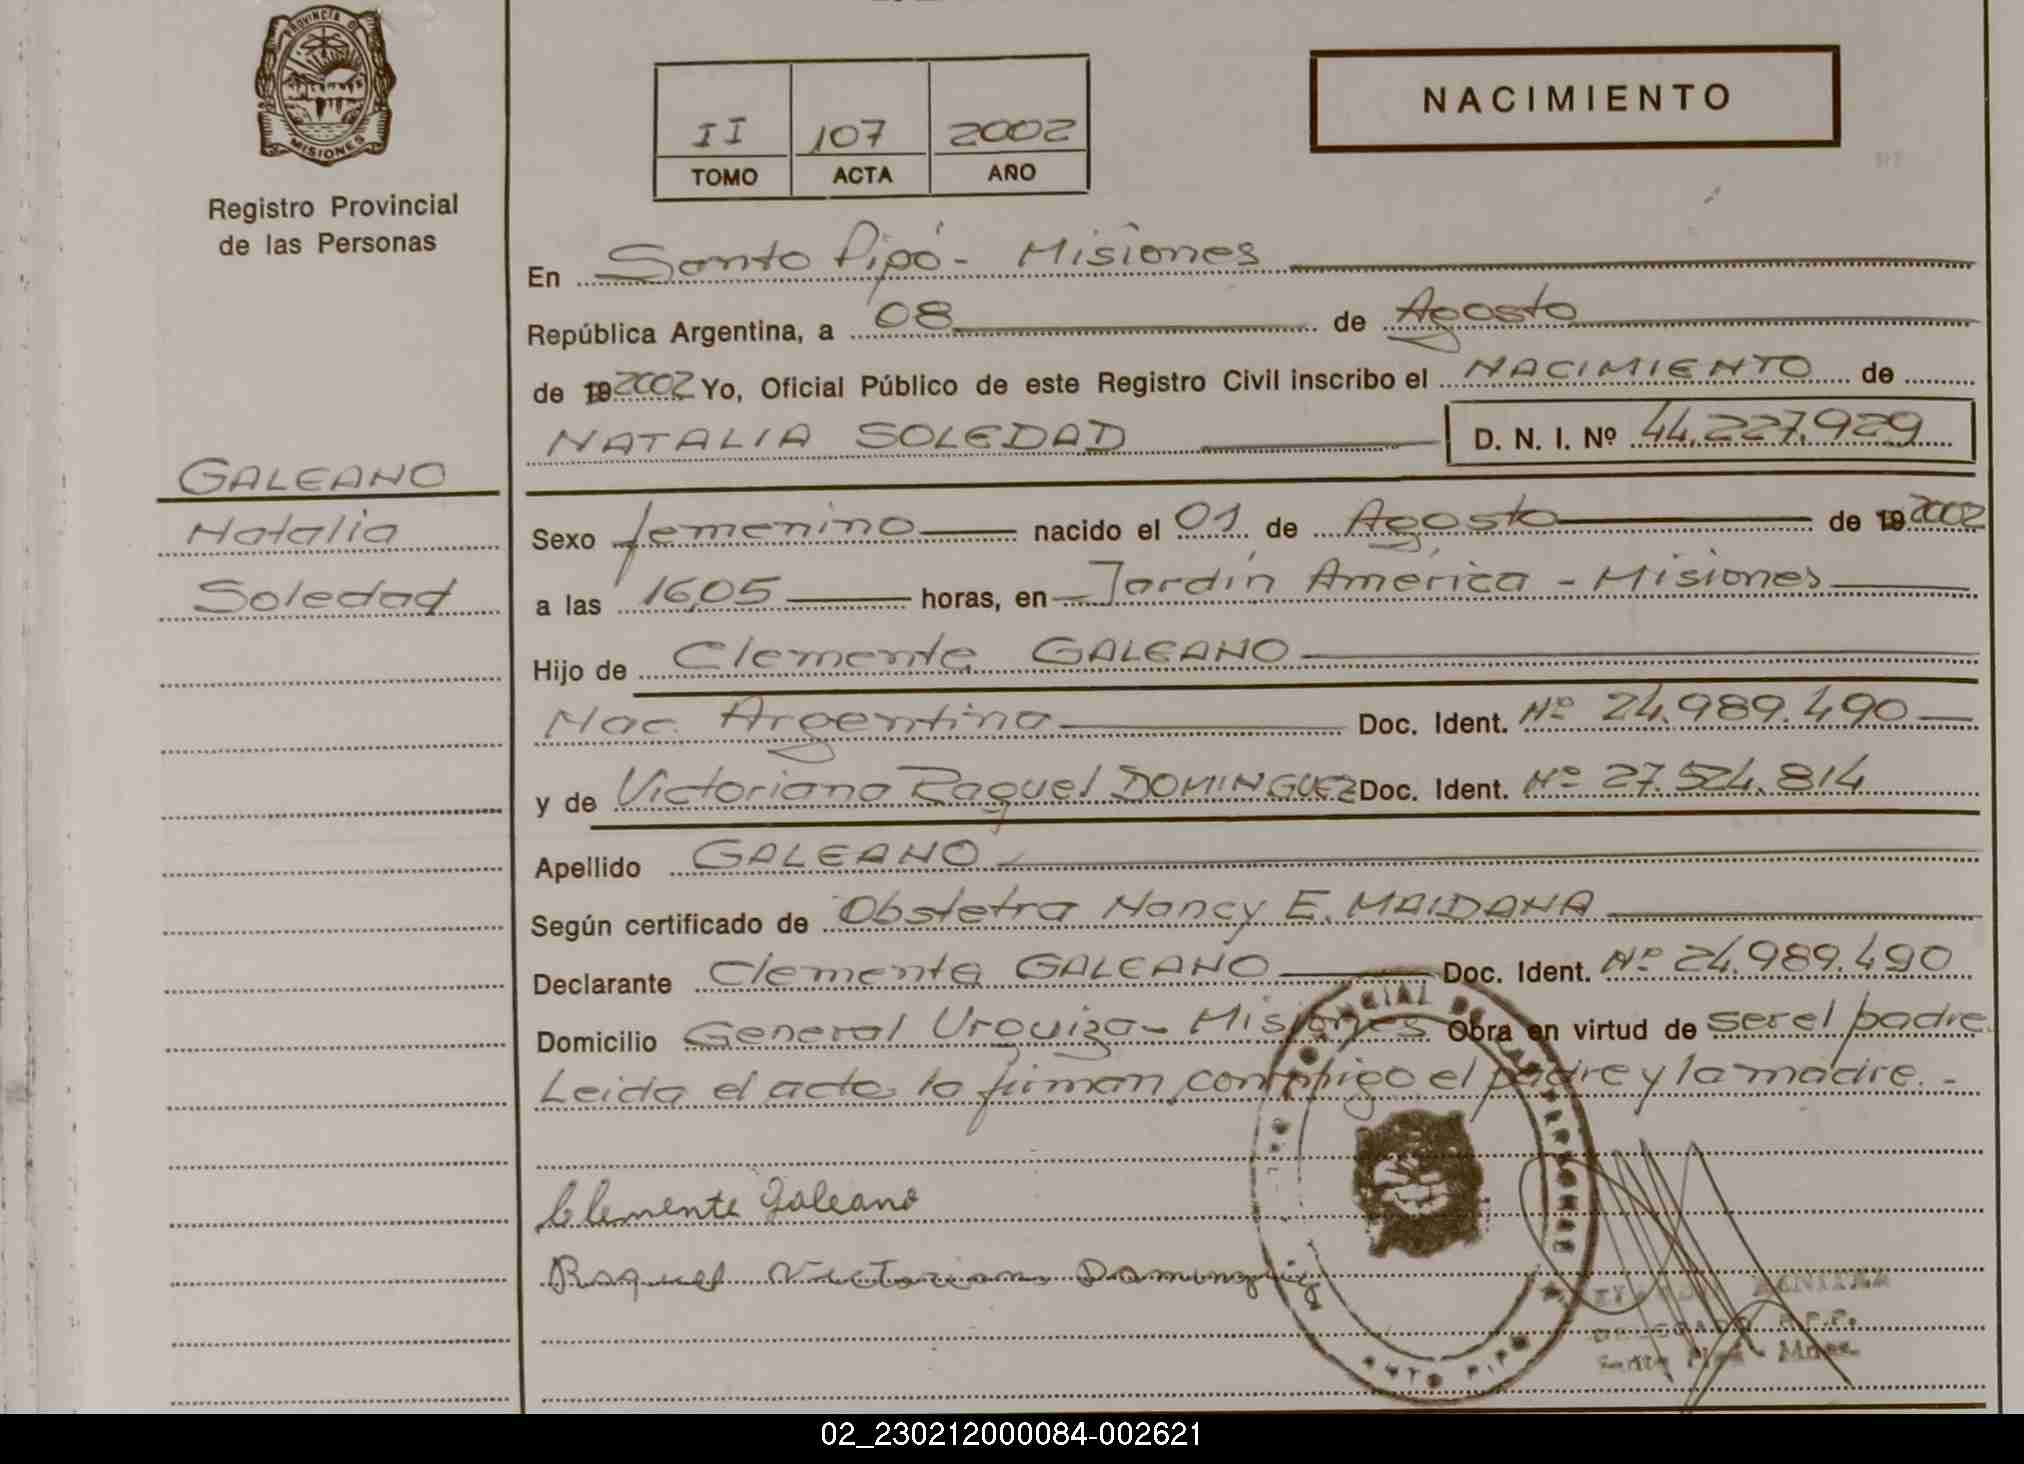 PROVINCIA DE
MISIONES
Registro Provincial
de las Personas
GALEANO
Natalia
Soledad
II 107 2002
TOMO ACTA AÑO
NACIMIENTO
En Santo Pipó - Misiones
República Argentina, a 08 de Agosto
de 19 2002 Yo, Oficial Público de este Registro Civil inscribo el NACIMIENTO de
NATALIA SOLEDAD D. N. I. Nº 44.227.929
Sexo femenino nacido el 01 de Agosto de 19 2002
a las 16,05 horas, en Jardín América - Misiones
Hijo de Clemente GALEANO
Nac. Argentina Doc. Ident. Nº 24.989.490
y de Victoriana Raquel DOMINGUEZ Doc. Ident. Nº 27.524.814
Apellido GALEANO
Según certificado de Obstetra Nancy E. MAIDANA
Declarante Clemente GALEANO Doc. Ident. Nº 24.989.490
Domicilio General Urquiza - Misiones Obra en virtud de ser el padre
Leida el acta la firman conmigo el padre y la madre. -
Clemente Galeano
Raquel Victoriana Dominguez
DELEGADO R.P.P.
Santo Pipó - Mnes.
02_230212000084-002621